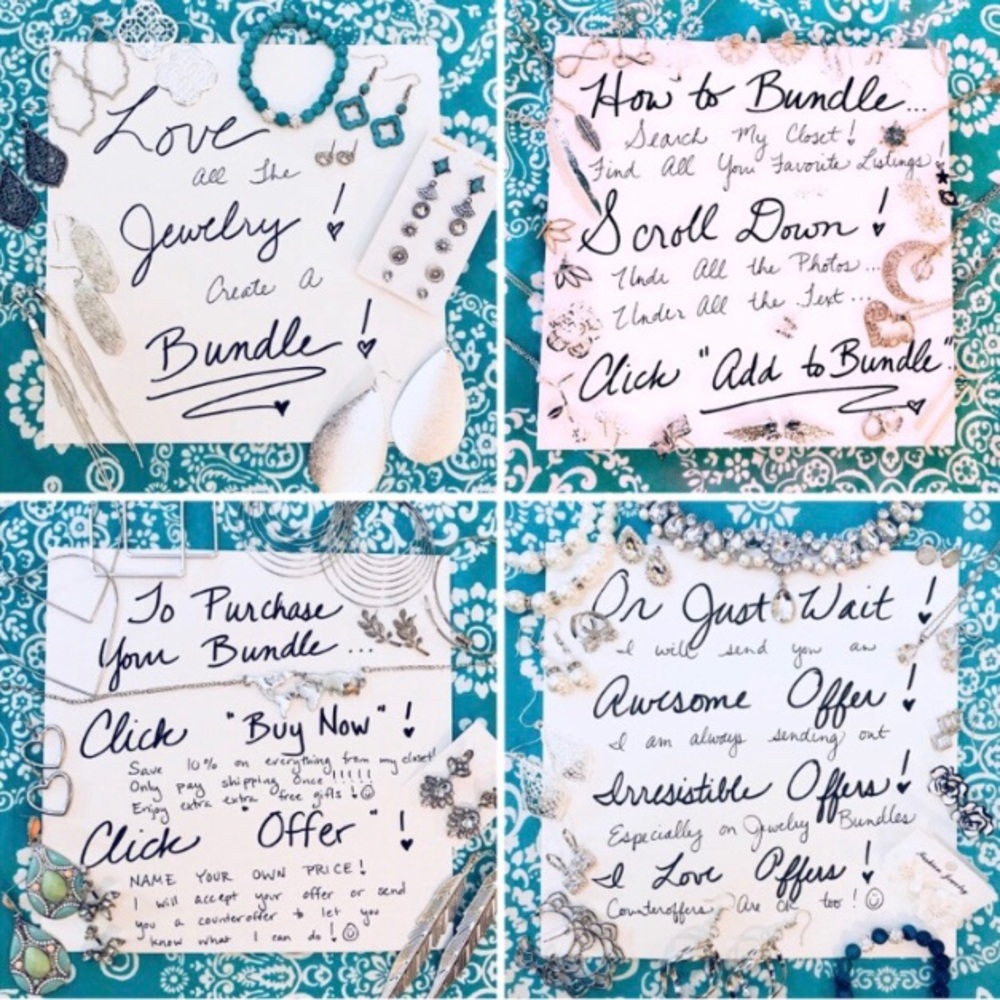 Love
All The
Jewelry!
Create A
Bundle!
How to Bundle...
Search My Closet!
Find All Your Favorite Listings!
Scroll Down!
Unde All the Photos...
Under All the Text...
Click "Add to Bundle".
To Purchase
Your Bundle...
Click "Buy Now"!
Save 10% on everything from my closet!
Only pay shipping once!!!!!
Enjoy extra extra free gifts!
Click "Offer"!
NAME YOUR OWN PRICE!
I will accept your offer or send
you a counteroffer to let you
know what I can do!
Or Just Wait!
I will send you an
Awesome Offer!
I am always sending out
Irresistible Offers!
Especially on Jewelry Bundles
I Love Offers!
Counteroffers Are OK too!